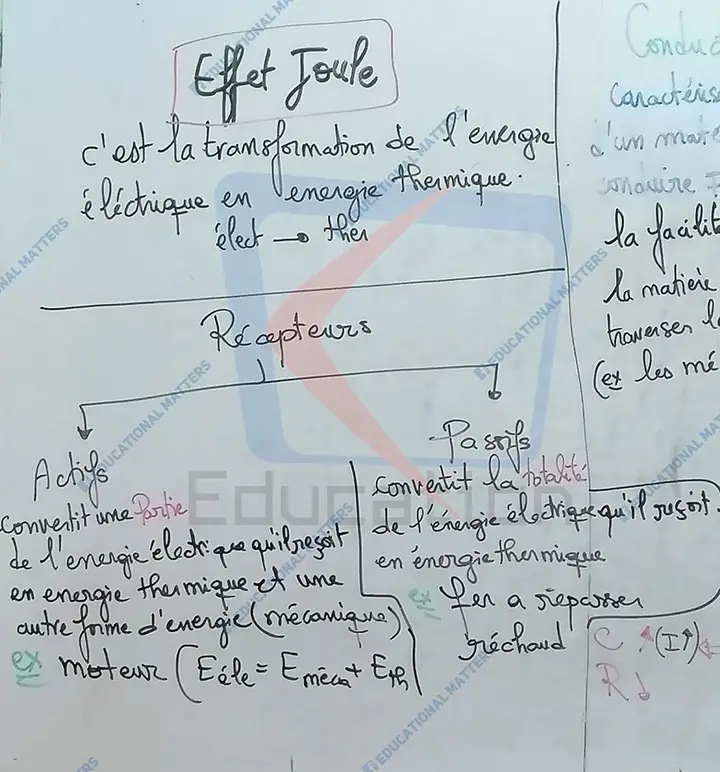 Effet Joule
c'est la transformation de l'energie
éléctrique en energie thermique.
élect → ther
Récepteurs
Actifs
convertit une Partie
de l'energie électrique qu'il reçoit
en energie thermique et une
autre forme d'energie (mécanique)
ex moteur (Eéle = Eméca + Eth
Passifs
convertit la totalité
de l'énergie électrique qu'il reçoit.
en énergie thermique
ex fer a repasser
réchaud
Conduc
caractéris
d'un maté
la facilit
la matière
traverser l
(ex les mé
C ↑ (I↑) ←
R ↓
EDUCATIONAL MATTERS
Education